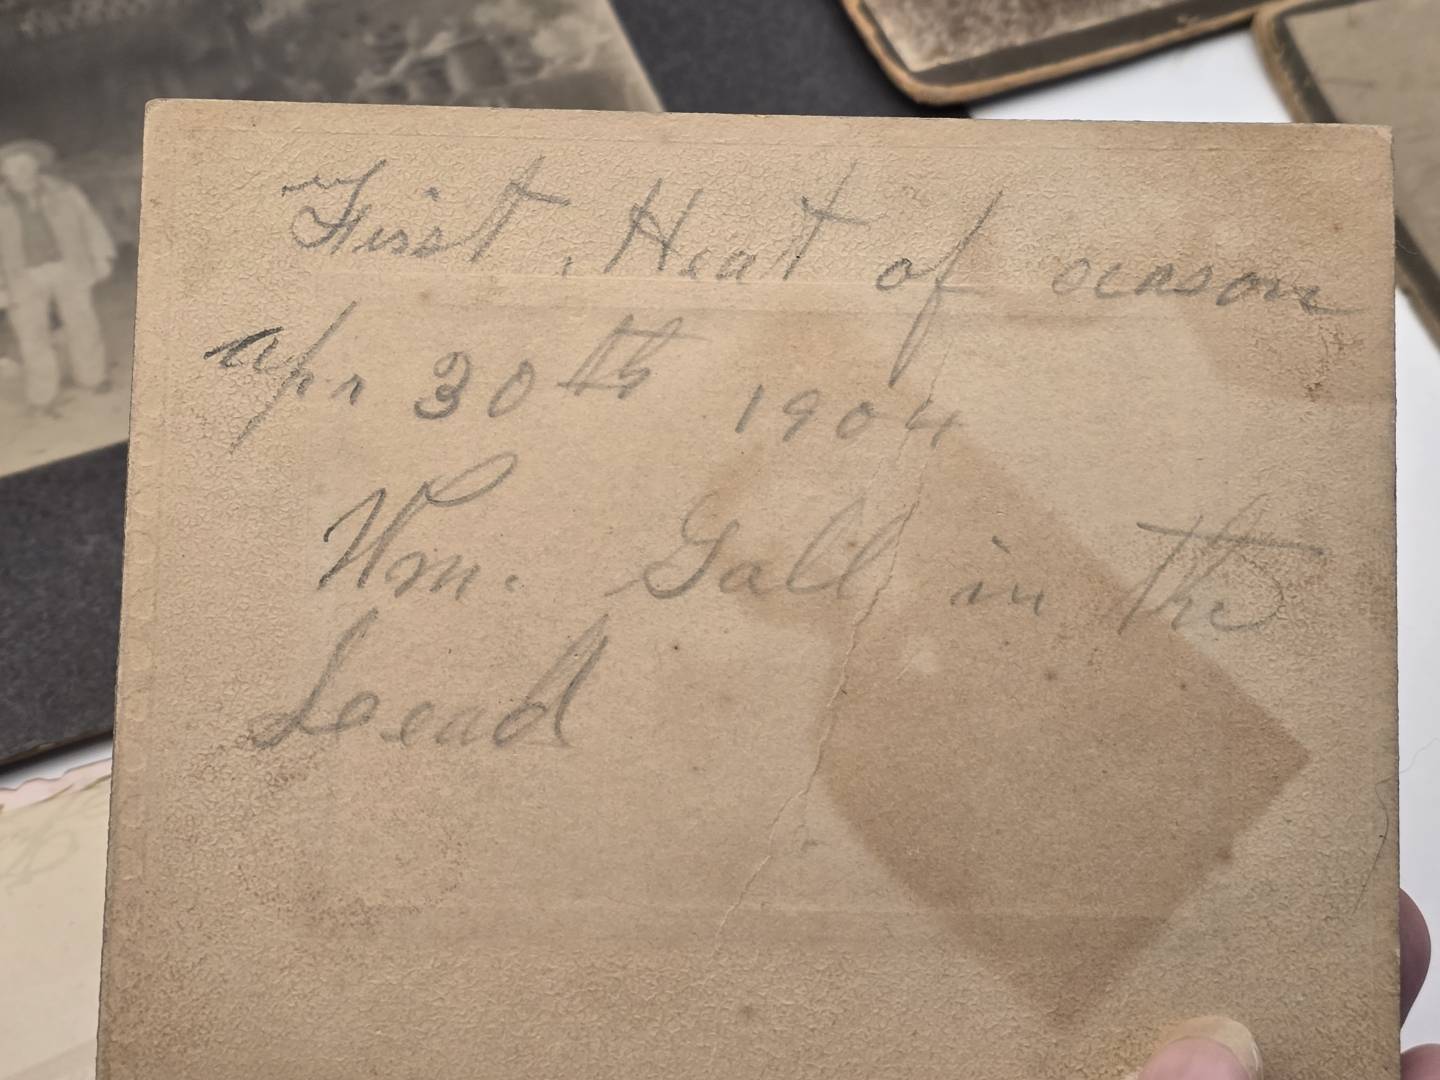 First Heat of season
Apr 30th 1904
Wm. Gall in the
Lead